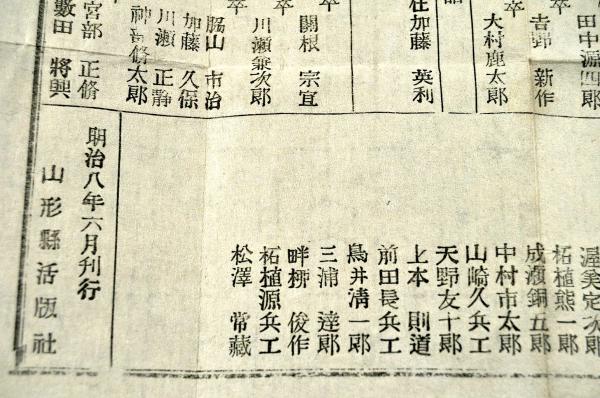 田中源四郎
卒
吉野 新作
卒
大村鹿太郎
加藤 英利
卒
關根 宗宜
川瀬乗次郎
卒
脇山 市治
加藤 久保
川瀬 正静
神部脩太郎
宮部 正脩
數田 將興
渥美定次郎
柘植熊一郎
成瀬銅五郎
中村市太郎
山崎久兵工
天野友十郎
上本 則道
前田長兵工
鳥井清一郎
三浦 達郎
畔栁 俊作
柘植源兵工
松澤 常藏
明治八年六月刊行
山形縣活版社